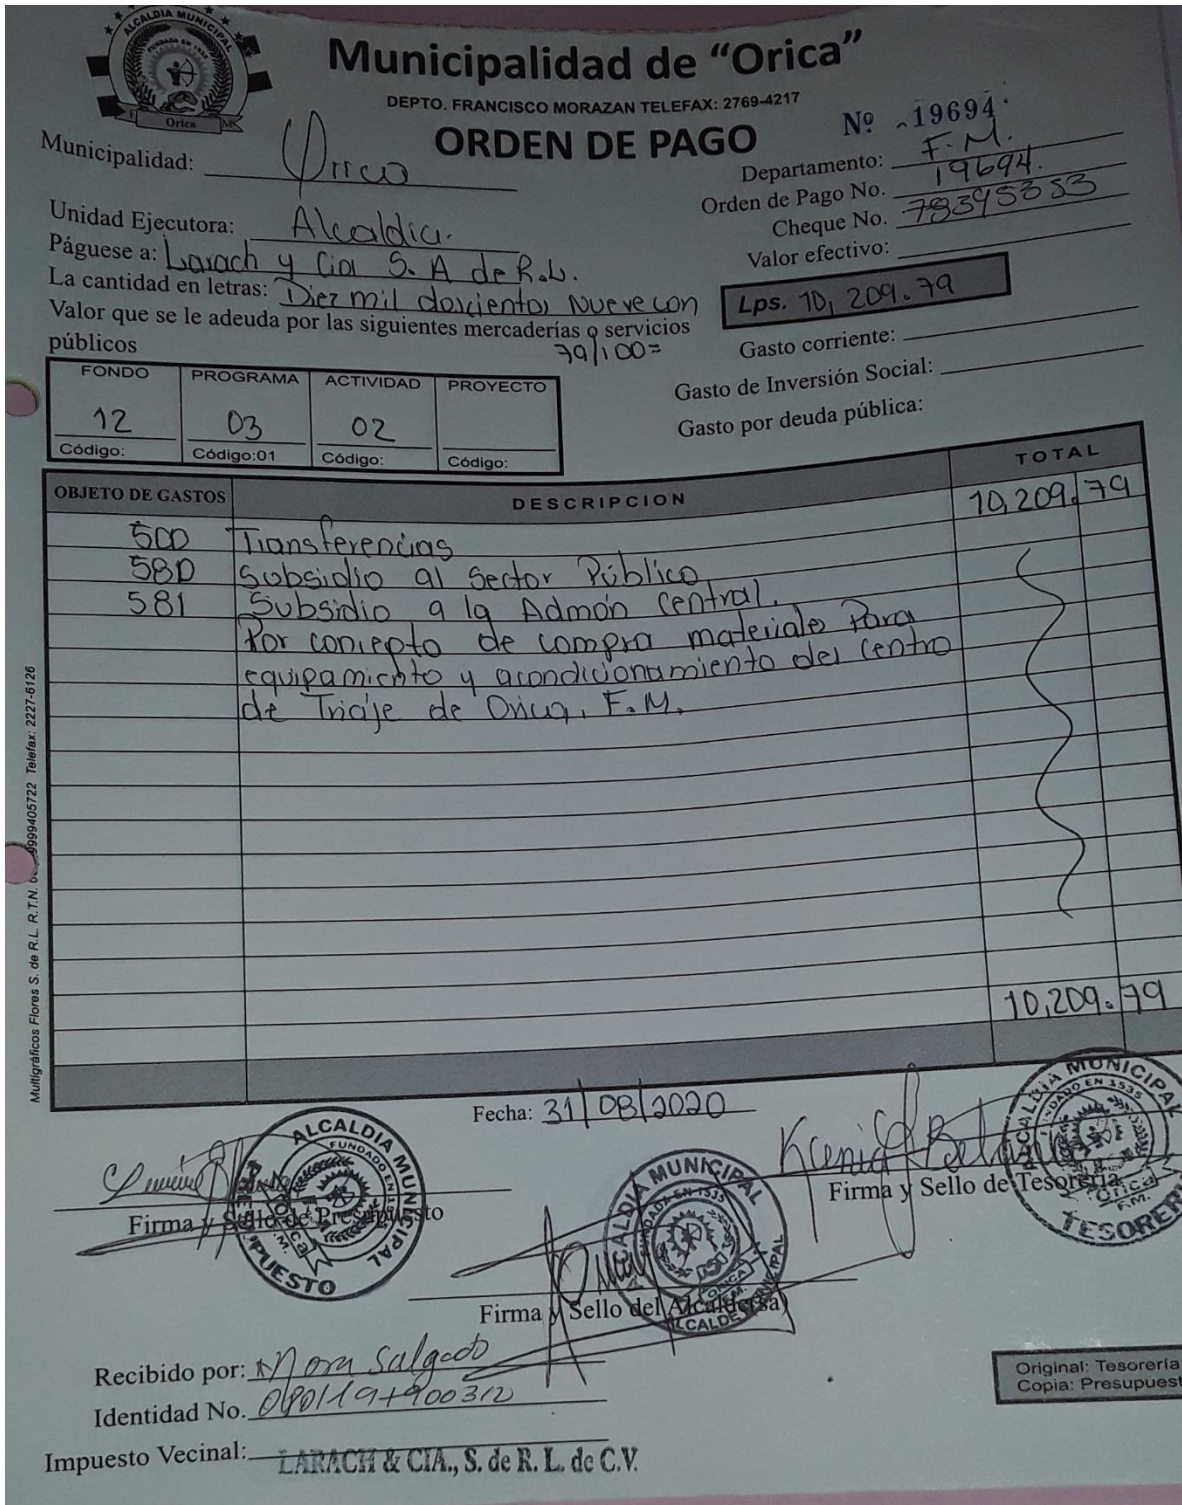 ALCALDIA MUNICIPAL
FUNDADA EN 1535
Orica
Municipalidad de “Orica”
DEPTO. FRANCISCO MORAZAN TELEFAX: 2769-4217
ORDEN DE PAGO
Nº 19694
Municipalidad: Orica
Departamento: F.M.
Orden de Pago No. 19694.
Cheque No. 78395353
Valor efectivo:
Unidad Ejecutora: Alcaldia.
Páguese a: Larach y Cia S. A de R.L.
La cantidad en letras: Diez mil doscientos Nueve con
Lps. 10,209.79
Valor que se le adeuda por las siguientes mercaderías o servicios
públicos 79/100=
Gasto corriente:
Gasto de Inversión Social:
Gasto por deuda pública:
FONDO PROGRAMA ACTIVIDAD PROYECTO
12 03 02
Código: Código:01 Código: Código:
OBJETO DE GASTOS DESCRIPCION TOTAL
10,209.79
500 Transferencias
580 Subsidio al Sector Público
581 Subsidio a la Admón Central.
Por concepto de compra materiales Para
equipamiento y acondicionamiento del Centro
de Triaje de Orica, F.M.
10,209.79
Multigráficos Flores S. de R.L. R.T.N. 9999405722 Telefax: 2227-6126
Fecha: 31/08/2020
ALCALDIA MUNICIPAL
FUNDADO EN
Orica
F.M.
PRESUPUESTO
Firma y Sello de Presupuesto
ALCALDIA MUNICIPAL
FUNDADO EN 1535
Orica
F.M.
TESORERI
Firma y Sello de Tesorería
ALCALDIA MUNICIPAL
FUNDADA EN 1535
ORICA
F.M.
Firma y Sello del Alcalde(sa)
Recibido por: Nora Salgado
Identidad No.
Impuesto Vecinal: LARACH & CIA., S. de R. L. de C.V.
Original: Tesorería
Copia: Presupuest